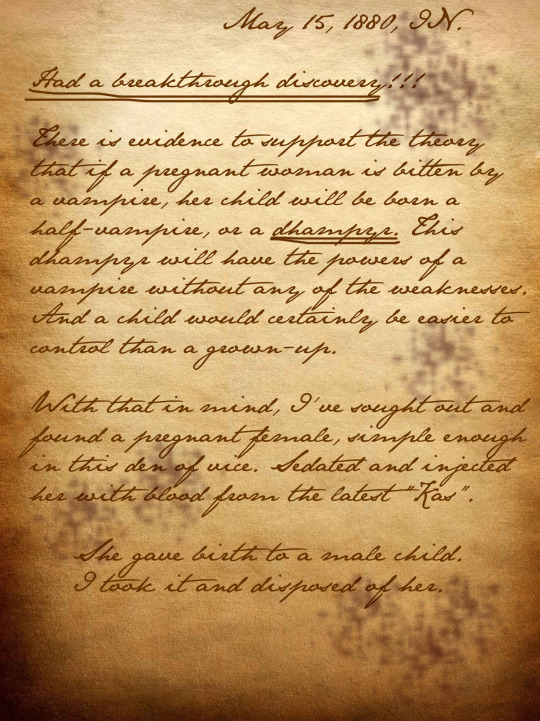 May 15, 1880, IN.
Had a breakthrough discovery!!!
There is evidence to support the theory
that if a pregnant woman is bitten by
a vampire, her child will be born a
half-vampire, or a dhampyr. This
dhampyr will have the powers of a
vampire without any of the weaknesses.
And a child would certainly be easier to
control than a grown-up.
With that in mind, I've sought out and
found a pregnant female, simple enough
in this den of vice. Sedated and injected
her with blood from the latest "Kas".
She gave birth to a male child.
I took it and disposed of her.